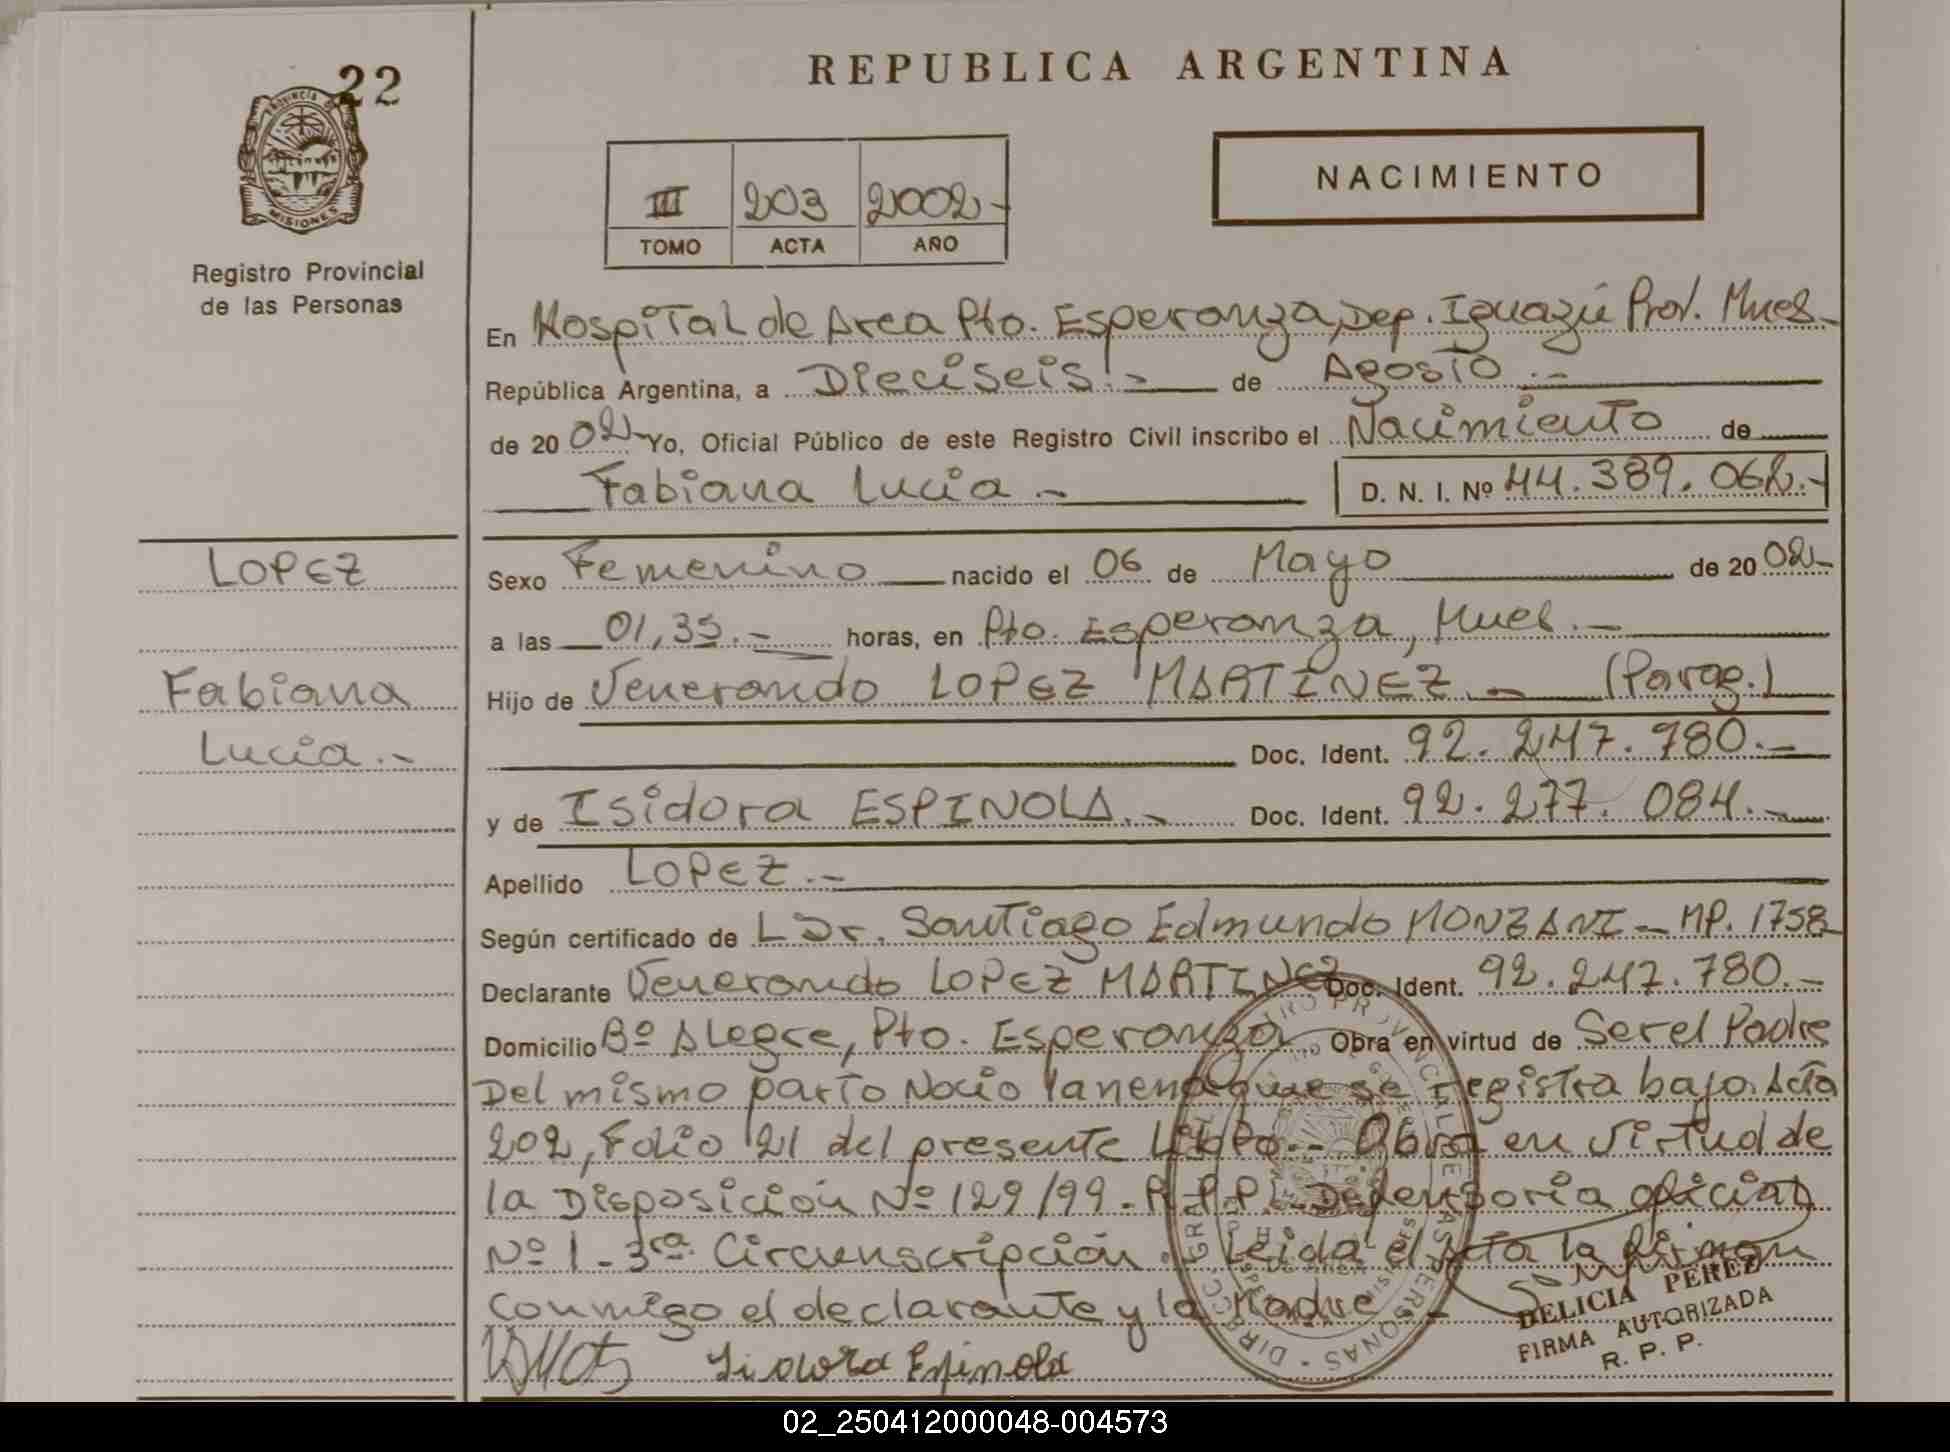 22
PROVINCIA DE
MISIONES
Registro Provincial
de las Personas
REPUBLICA ARGENTINA
III 203 2002-
TOMO ACTA AÑO
NACIMIENTO
En Hospital de Area Pto. Esperanza, Dep. Iguazú Prov. Mnes.-
República Argentina, a Dieciseis.- de Agosto.-
de 2002- Yo, Oficial Público de este Registro Civil inscribo el Nacimiento de
Fabiana Lucia.- D. N. I. Nº 44.389.062.-
LOPEZ
Fabiana
Lucia.-
Sexo Femenino nacido el 06 de Mayo de 2002-
a las 01,35.- horas, en Pto. Esperanza, Mnes.-
Hijo de Venerando LOPEZ MARTINEZ.- (Parag.)
Doc. Ident. 92.247.780.-
y de Isidora ESPINOLA.- Doc. Ident. 92.277.084.-
Apellido LOPEZ.-
Según certificado de L Dr. Santiago Edmundo MONZANI - MP. 1758
Declarante Venerando LOPEZ MARTINEZ Doc. Ident. 92.247.780.-
Domicilio Bº Alegre, Pto. Esperanza Obra en virtud de Ser el Padre
Del mismo parto Nacio la nena que se registra bajo Acta
202, Folio 21 del presente Libro.- Obra en virtud de
la Disposición Nº 129/99 - R.P.P. Defensoria oficial
Nº 1 - 3ra Circunscripción. Leida el Acta la firman
conmigo el declarante y la Madre -
Isidora Espinola
DELICIA PEREZ
FIRMA AUTORIZADA
R. P. P.
02_250412000048-004573